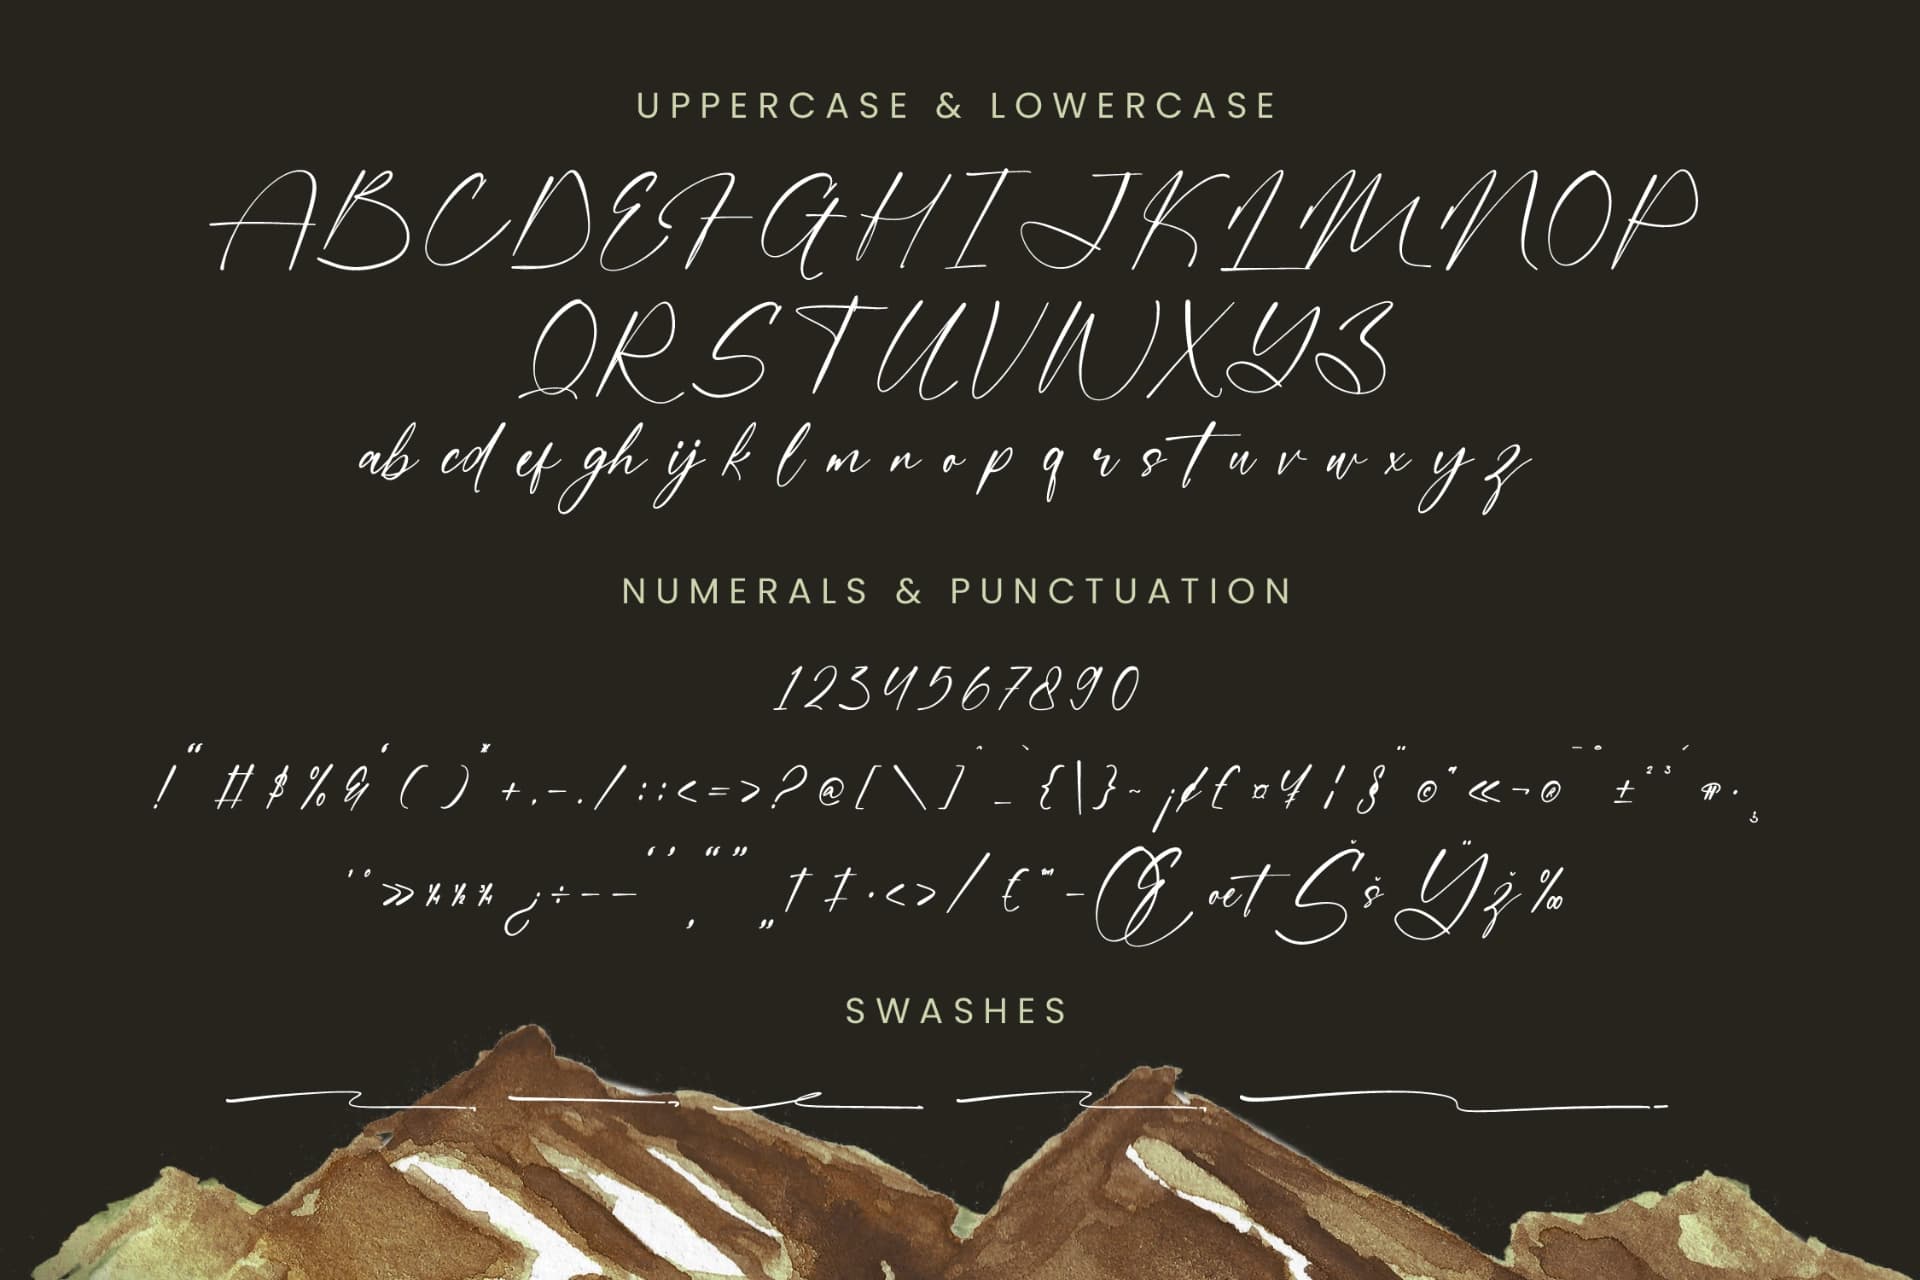 UPPERCASE & LOWERCASE
ABCDEFGHIJKLMNOP
QRSTUVWXYZ
ab cd ef gh ij k l m n o p q r s t u v w x y z
NUMERALS & PUNCTUATION
1234567890
! “ # $ % & ‘ ( ) * + , - . / : ; < = > ? @ [ \ ] ^ _ ` { | } ~ ¡ ¢ £ ¤ ¥ ¦ § ¨ © ª « ¬ ® ¯ ° ± ² ³ ´ ¶ · ¸
¹ º » ¼ ½ ¾ ¿ ÷ – — ‘ ’ ‚ “ ” „ † ‡ • ‹ › ⁄ € ™ − Œ œ t Š š Ÿ ž ‰
SWASHES